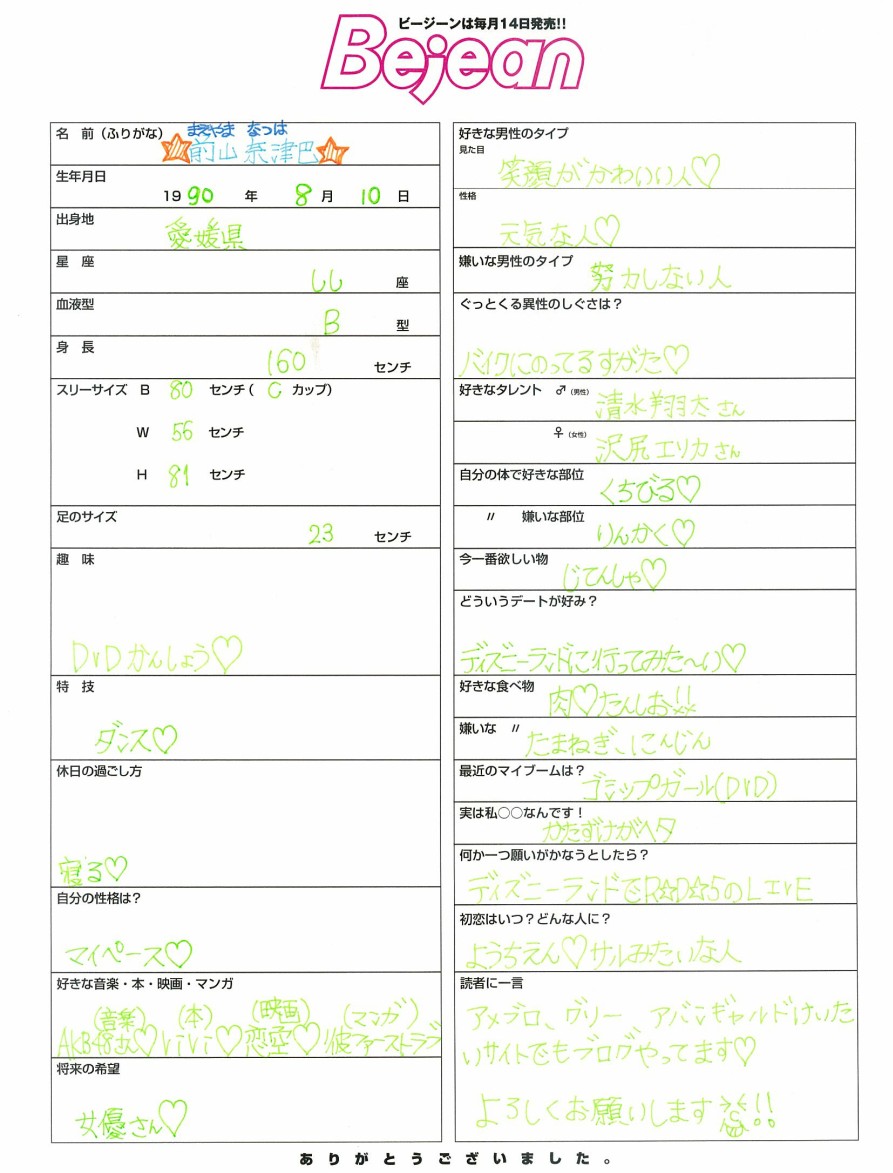 ビージーンは毎月14日発売!!
Bejean
名　前（ふりがな）　まえやま　なつは
前山 奈津巴
生年月日
19 90 年 8 月 10 日
出身地
愛媛県
星　座
しし 座
血液型
B 型
身　長
160 センチ
スリーサイズ　B　80　センチ（ C カップ）
W　56　センチ
H　81　センチ
足のサイズ
23 センチ
趣　味
DVDかんしょう♡
特　技
ダンス♡
休日の過ごし方
寝る♡
自分の性格は？
マイペース♡
好きな音楽・本・映画・マンガ
(音楽) (本) (映画) (マンガ)
AKB48さん♡ViVi♡恋空♡彼ファーストラブ
将来の希望
女優さん♡
好きな男性のタイプ
見た目
笑顔がかわいい人♡
性格
元気な人♡
嫌いな男性のタイプ
努力しない人
ぐっとくる異性のしぐさは？
バイクにのってるすがた♡
好きなタレント　♂（男性）　清水翔太さん
♀（女性）　沢尻エリカさん
自分の体で好きな部位
くちびる♡
〃　嫌いな部位
りんかく♡
今一番欲しい物
じてんしゃ♡
どういうデートが好み？
ディズニーランドに行ってみた〜い♡
好きな食べ物
肉♡たんしお!!
嫌いな　〃
たまねぎ、にんじん
最近のマイブームは？
ゴシップガール(DVD)
実は私○○なんです！
かたずけがヘタ
何か一つ願いがかなうとしたら？
ディズニーランドでR☆D☆5のLIVE
初恋はいつ？どんな人に？
ようちえん♡サルみたいな人
読者に一言
アメブロ、グリー、アバンギャルドけいた
いサイトでもブログやってます♡
よろしくお願いします!!
ありがとうございました。